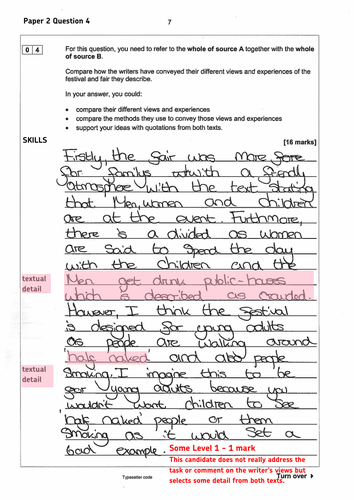 Paper 2 Question 4
7
0 4
For this question, you need to refer to the whole of source A together with the whole
of source B.
Compare how the writers have conveyed their different views and experiences of the
festival and fair they describe.
In your answer, you could:
• compare their different views and experiences
• compare the methods they use to convey those views and experiences
• support your ideas with quotations from both texts.
SKILLS
[16 marks]
Firstly, the fair was more
for familys with a friendly
atmosphere with the text stating
that. Men, women and children
are at the event. Furthmore,
there is a divided as women
are said to spend the day
with the children and the
textual
detail
Men get drunk public-houses
which is described as crowded.
However, I think the festival
is designed for young adults
as people are walking around
textual
detail
'half naked' and also people
smoking, I imagine this to be
gear young adults because you
wouldn't want children to see
'half naked' people or them
smoking as it would set a
bad example.
Some Level 1 - 1 mark
This candidate does not really address the
task or comment on the writer's views but
selects some detail from both texts.
Typesetter code
Turn over